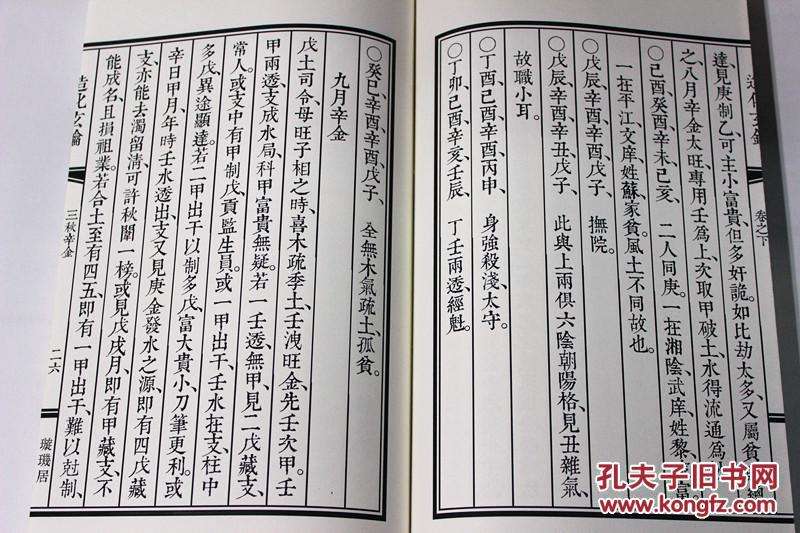 造化玄鑰 卷之下
達見庚制乙、可主小富貴、但多奸詭。如比劫太多、又屬貧
之。八月辛金太旺、專用壬爲上、次取甲破土、水得流通爲
○己酉癸酉辛未己亥、 二人同庚。一在湘陰武庠、姓黎 富、
一在平江文庠、姓蘇家貧、風土不同故也。
○戊辰、辛酉辛酉戊子、 撫院。
○戊辰辛酉辛丑戊子、 此與上兩俱六陰朝陽格、見丑雜氣、
故職小耳。
○丁酉己酉辛酉丙申、 身強殺淺、太守。
○丁卯、己酉辛亥壬辰、 丁壬兩透、經魁。
○癸巳、辛酉辛酉戊子、 全無木氣疏土、孤貧。
九月辛金
戊土司令、母旺子相之時、喜木疏季土、壬洩旺金、先壬次甲。壬
甲兩透、支成水局、科甲富貴無疑。若一壬透、無甲見二戊藏支、
常人。或支中有甲制戊、貢監生員。或一甲出干、壬水在支、柱中
多戊、異途顯達。若二甲出干以制多戊、富大貴小、刀筆更利。或
辛日甲月、年時壬水透出、支又見庚金發水之源、即有四戊藏
支、亦能去濁留清、可許秋闈一榜。或見戊戌月、即有甲藏支、不
能成名、且損祖業。若合土至有四五、即有一甲出干、難以尅制、
造化玄鑰 三秋辛金 二六 璇璣居
孔夫子旧书网
www.kongfz.com